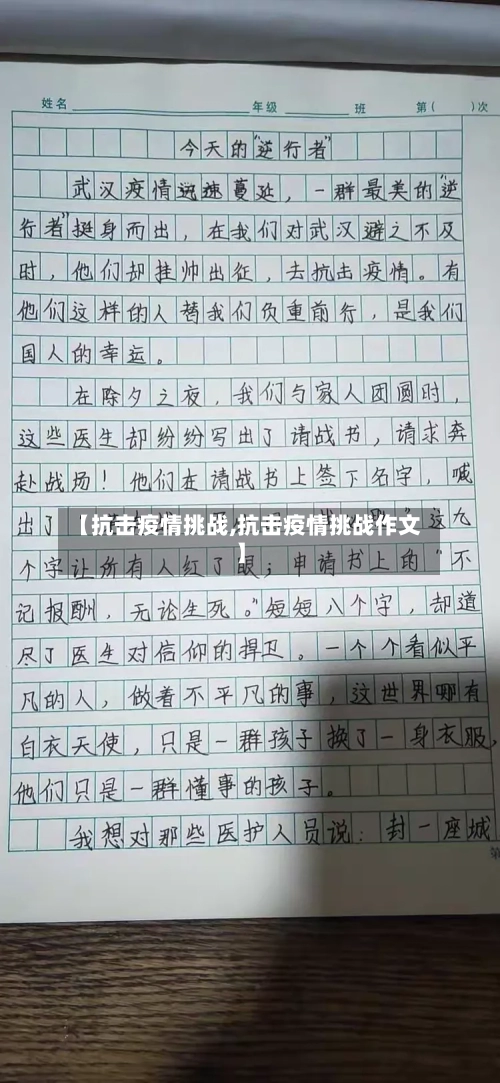 姓名 年级 班 第( )次
今天的“逆行者”
武汉疫情迅速蔓延，一群最美的“逆
行者”挺身而出，在我们对武汉避之不及
时，他们却挂帅出征，去抗击疫情。有
他们这样的人替我们负重前行，是我们
国人的幸运。
在除夕之夜，我们与家人团圆时，
这些医生却纷纷写出了请战书，请求奔
赴战场！他们在请战书上签下名字，喊
出了
【抗击疫情挑战,抗击疫情挑战作文
】
这九
个字让所有人红了眼；申请书上的“不
记报酬，无论生死。”短短八个字，却道
尽了医生对信仰的捍卫。一个个看似平
凡的人，做着不平凡的事，这世界哪有
白衣天使，只是一群孩子换了一身衣服，
他们只是一群懂事的孩子。
我想对那些医护人员说：封一座城
第